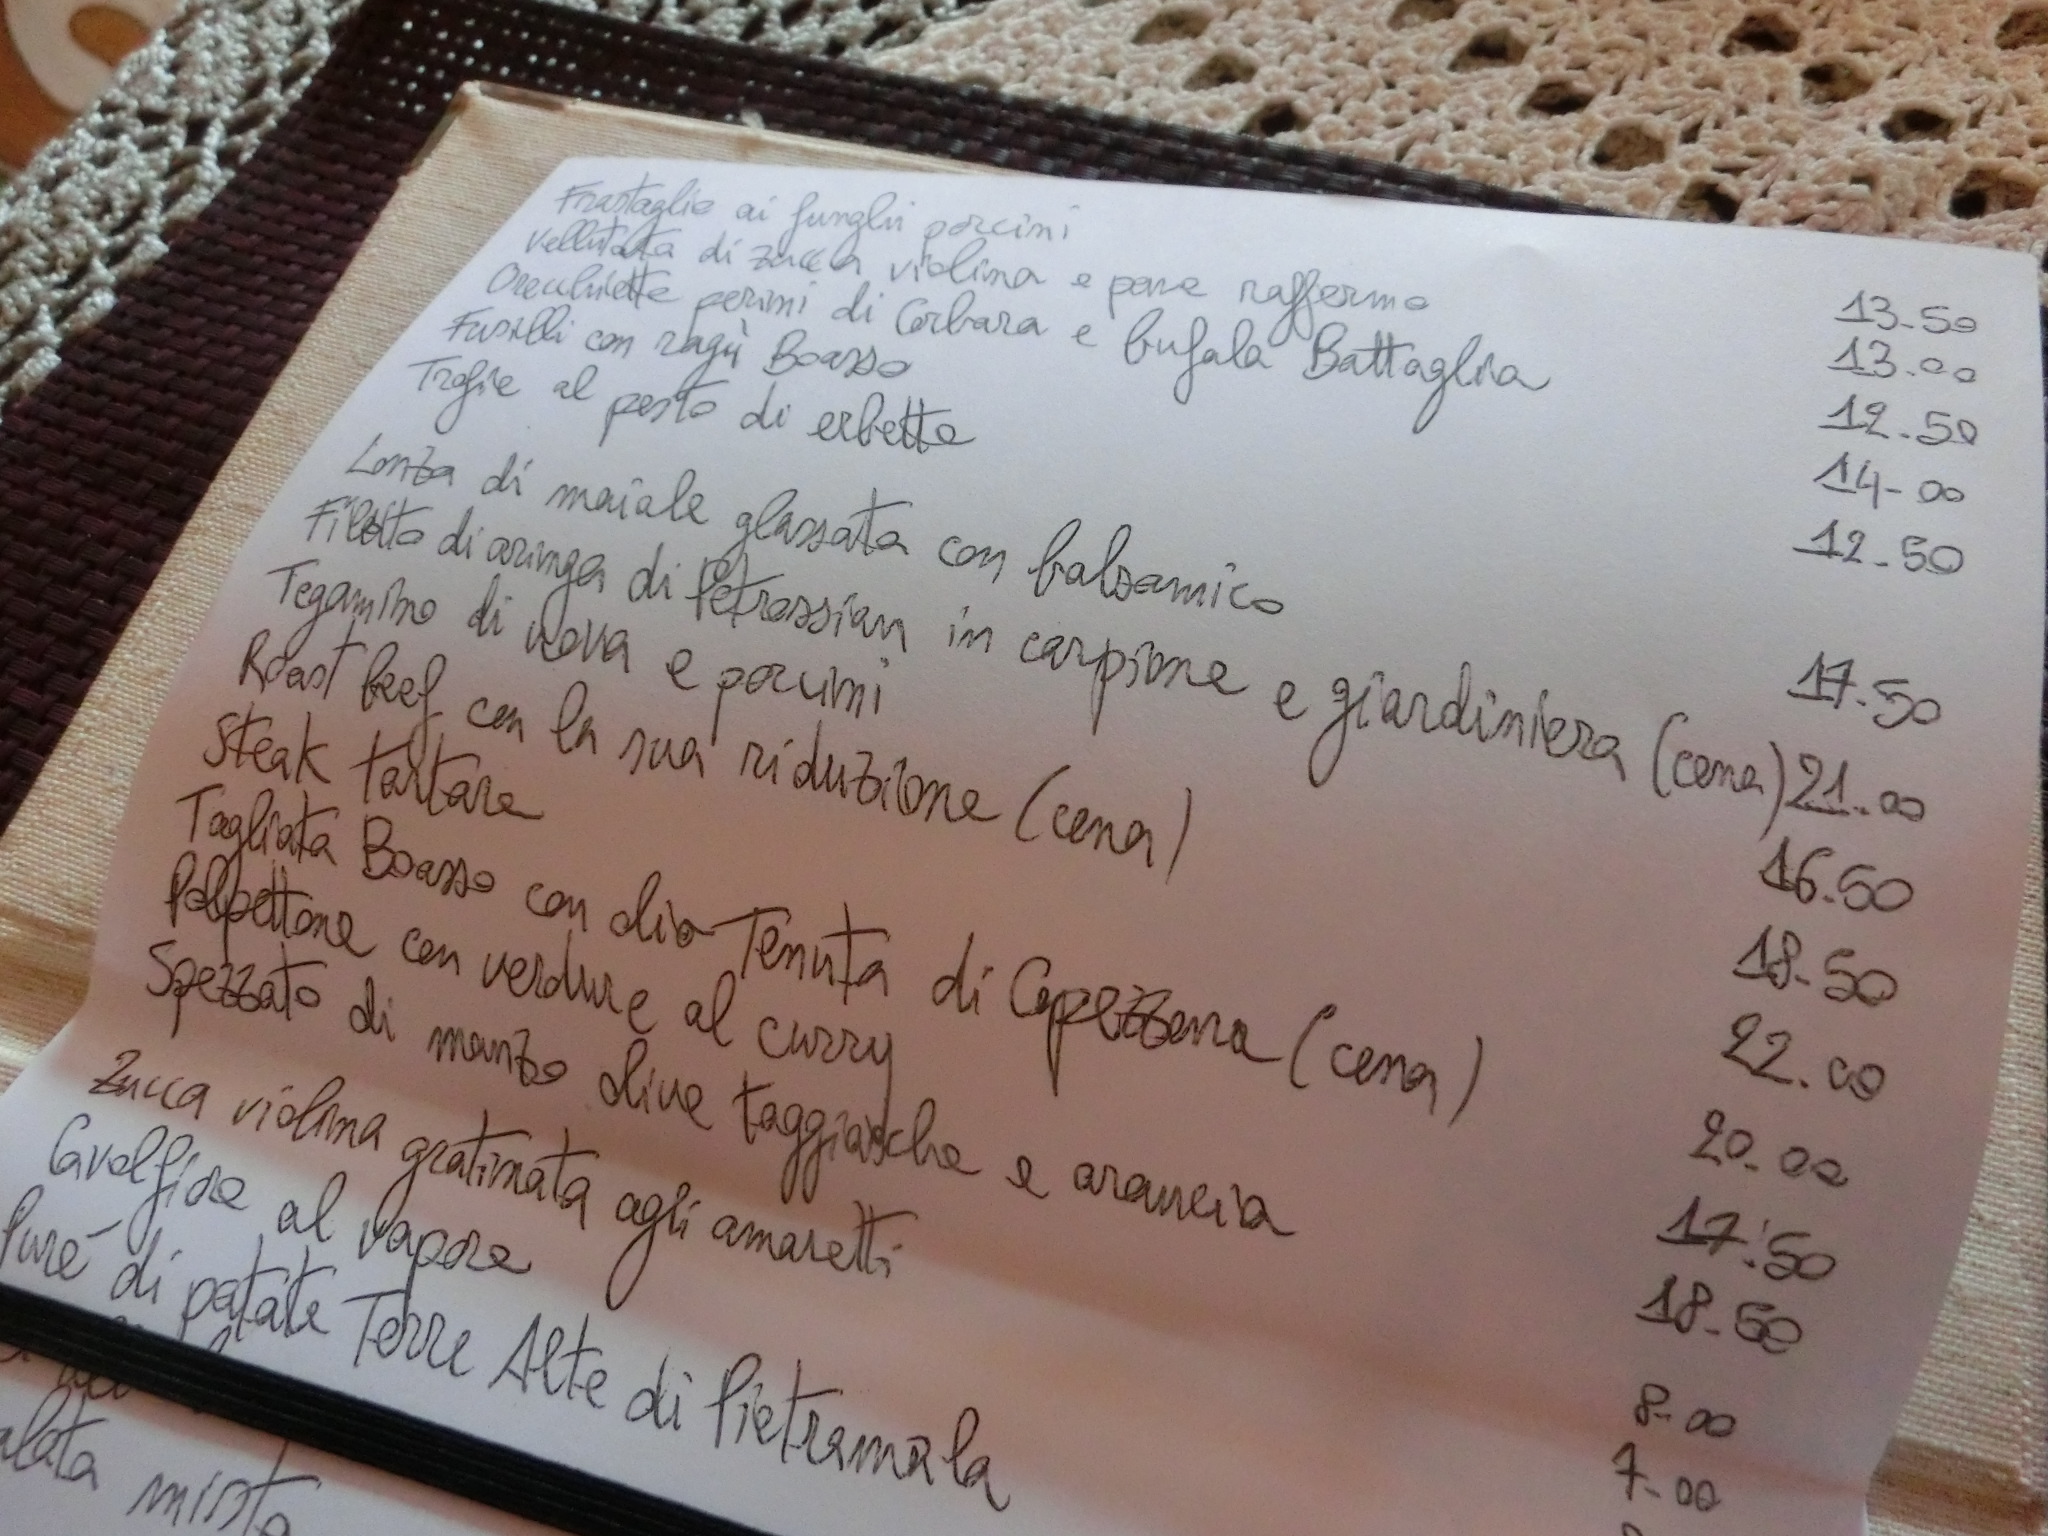 Frastaglie ai funghi porcini 13.50
Vellutata di zucca violina e pane raffermo 13.00
Orecchiette perini di Corbara e bufala Battaglia 12.50
Fusilli con ragù Boasso 14-00
Trofie al pesto di erbette 12.50
Lonza di maiale glassata con balsamico 17.50
Filetto di aringa di Petrossian in carpione e giardiniera (cena) 21.00
Tegamino di uova e porcini 16.50
Roast beef con la sua riduzione (cena) 18.50
Steak tartare 22.00
Tagliata Boasso con olio Tenuta di Capezzana (cena) 20.00
Polpettone con verdure al curry 17.50
Spezzato di manzo olive taggiasche e arancia 18.50
Zucca violina gratinata agli amaretti 8-00
Cavolfiore al vapore 7-00
Puré di patate Terre Alte di Pietramala
mista